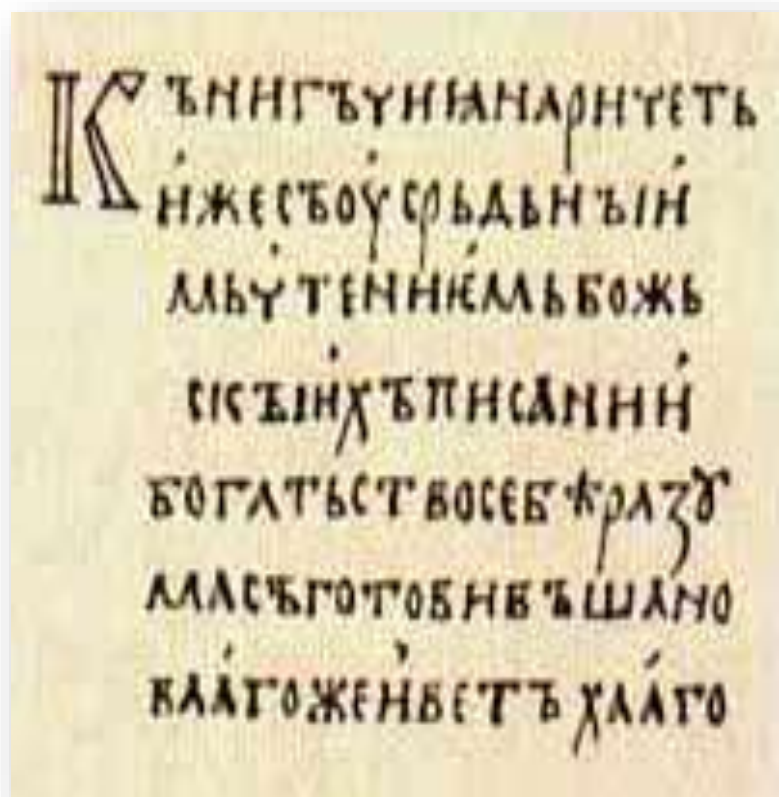 КЪНИГЪЧИІАНАРИЧЕТЬ
И҆ЖЕСЪОУ҆СРЬДЬНЪІИ҆
МЬЧТЕНИѤМЬБОЖЬ
СКЪІИХЪПИСАНИИ҆
БОГАТЬСТВОСЕБѢРАЗꙋ
МАСЪГОТОВИВЪШАНО
ВАА҆ГОЖЕИ҆ВЕТЪХАА҆ГО